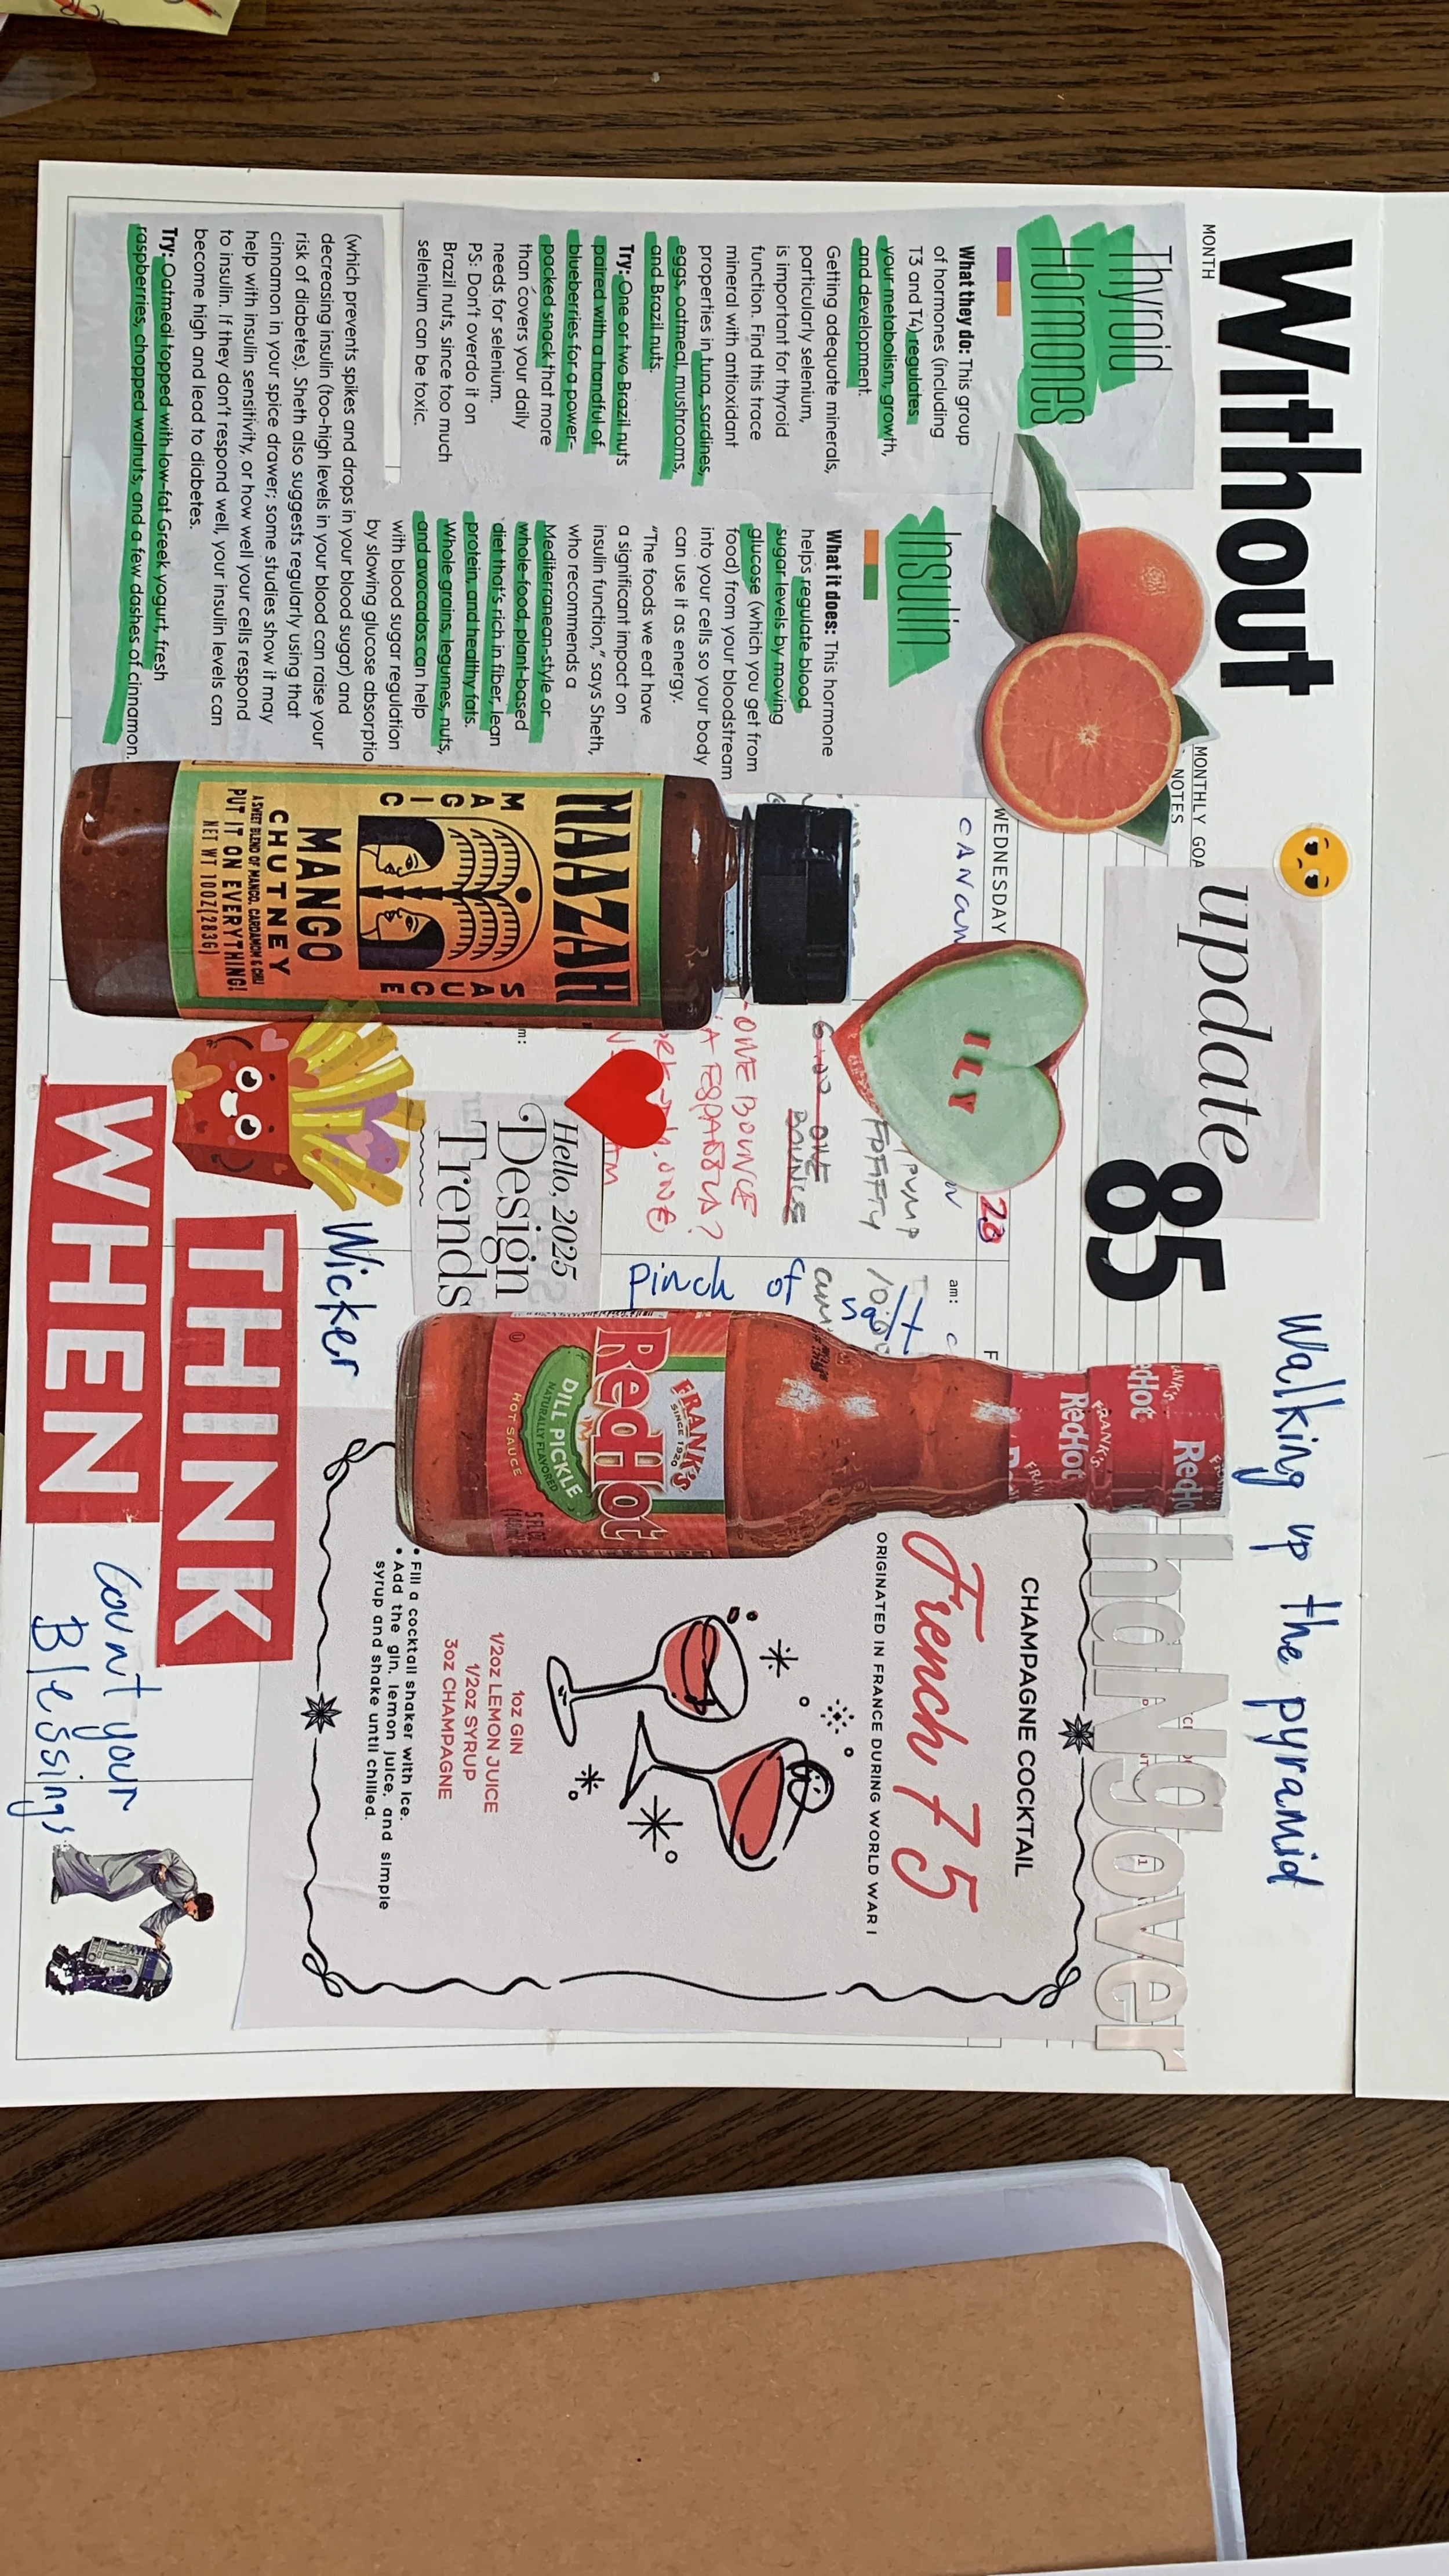 Without
MONTH
MONTHLY GOA
NOTES
update
85
Walking up the pyramid
haNgover
Thyroid
Hormones
What they do: This group
of hormones (including
T3 and T4) regulates
your metabolism, growth,
and development.
Getting adequate minerals,
particularly selenium,
is important for thyroid
function. Find this trace
mineral with antioxidant
properties in tuna, sardines,
eggs, oatmeal, mushrooms,
and Brazil nuts.
Try: One or two Brazil nuts
paired with a handful of
blueberries for a power-
packed snack that more
than covers your daily
needs for selenium.
PS: Don't overdo it on
Brazil nuts, since too much
selenium can be toxic.
Insulin
What it does: This hormone
helps regulate blood
sugar levels by moving
glucose (which you get from
food) from your bloodstream
into your cells so your body
can use it as energy.
"The foods we eat have
a significant impact on
insulin function," says Sheth,
who recommends a
Mediterranean-style or
whole-food, plant-based
diet that's rich in fiber, lean
protein, and healthy fats.
Whole grains, legumes, nuts,
and avocados can help
with blood sugar regulation
by slowing glucose absorptio
(which prevents spikes and drops in your blood sugar) and
decreasing insulin (too-high levels in your blood can raise your
risk of diabetes). Sheth also suggests regularly using that
cinnamon in your spice drawer; some studies show it may
help with insulin sensitivity, or how well your cells respond
to insulin. If they don't respond well, your insulin levels can
become high and lead to diabetes.
Try: Oatmeal topped with low-fat Greek yogurt, fresh
raspberries, chopped walnuts, and a few dashes of cinnamon.
WEDNESDAY
28
ILY
PUMP
ONE
BOUNCE
ONE BOUNCE
am:
pinch of
salt
MAAZAH
MAGIC SAUCE
MANGO
CHUTNEY
A SWEET BLEND OF MANGO, CARDAMOM & CHILI
PUT IT ON EVERYTHING!
NET WT 10OZ(283G)
Hello, 2025
Design
Trends
Wicker
THINK
WHEN
Count your
Blessings
FRANK'S
RedHot
FRANK'S
RedHot
FRANK'S
SINCE 1920
RedHot
DILL PICKLE
NATURALLY FLAVORED
HOT SAUCE
5 FL OZ
CHAMPAGNE COCKTAIL
French 75
ORIGINATED IN FRANCE DURING WORLD WAR I
1oz GIN
1/2oz LEMON JUICE
1/2oz SYRUP
3oz CHAMPAGNE
• Fill a cocktail shaker with ice.
• Add the gin, lemon juice, and simple
syrup and shake until chilled.